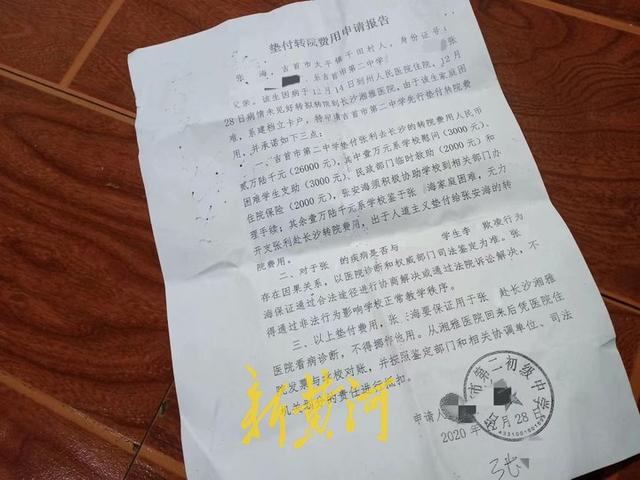 垫付转院费用申请报告
张 海，吉首市太平镇千田村人，身份证号：
系吉首市第二中学 张
父亲。该生因病于12月14日到州人民医院住院，12月
28日病情未见好转拟转院到长沙湘雅医院。由于该生家庭困
难，系建档立卡户，特申请吉首市第二中学先行垫付转院费
用，并承诺如下三点：
一、吉首市第二中学垫付张利去长沙的转院费用人民币
贰万陆千元（26000元），其中壹万元系学校慰问（3000元）、
困难学生支助（3000元）、民政部门临时救助（2000元）和
住院保险（2000元），张安海须积极协助学校到相关部门办
理手续；其余壹万陆千元系学校鉴于张 海家庭困难，无力
开支张利赴长沙转院费用，出于人道主义垫付给张安海的转
院费用。
二、对于张 的疾病是否与 学生李 欺凌行为
存在因果关系，以医院诊断和权威部门司法鉴定为准。张
海保证通过合法途径进行协商解决或通过法院诉讼解决，不
得通过非法行为影响学校正常教学秩序。
三、以上垫付费用，张 海要保证用于张 赴长沙湘雅
医院看病诊断，不得挪作他用。从湘雅医院回来后凭医院住
院发票与学校对账，并按照鉴定部门和相关协调单位、司法
机关划分的责任进行抵扣。
申请人
2020年 月28日
市第二初级中学
张
新黄河